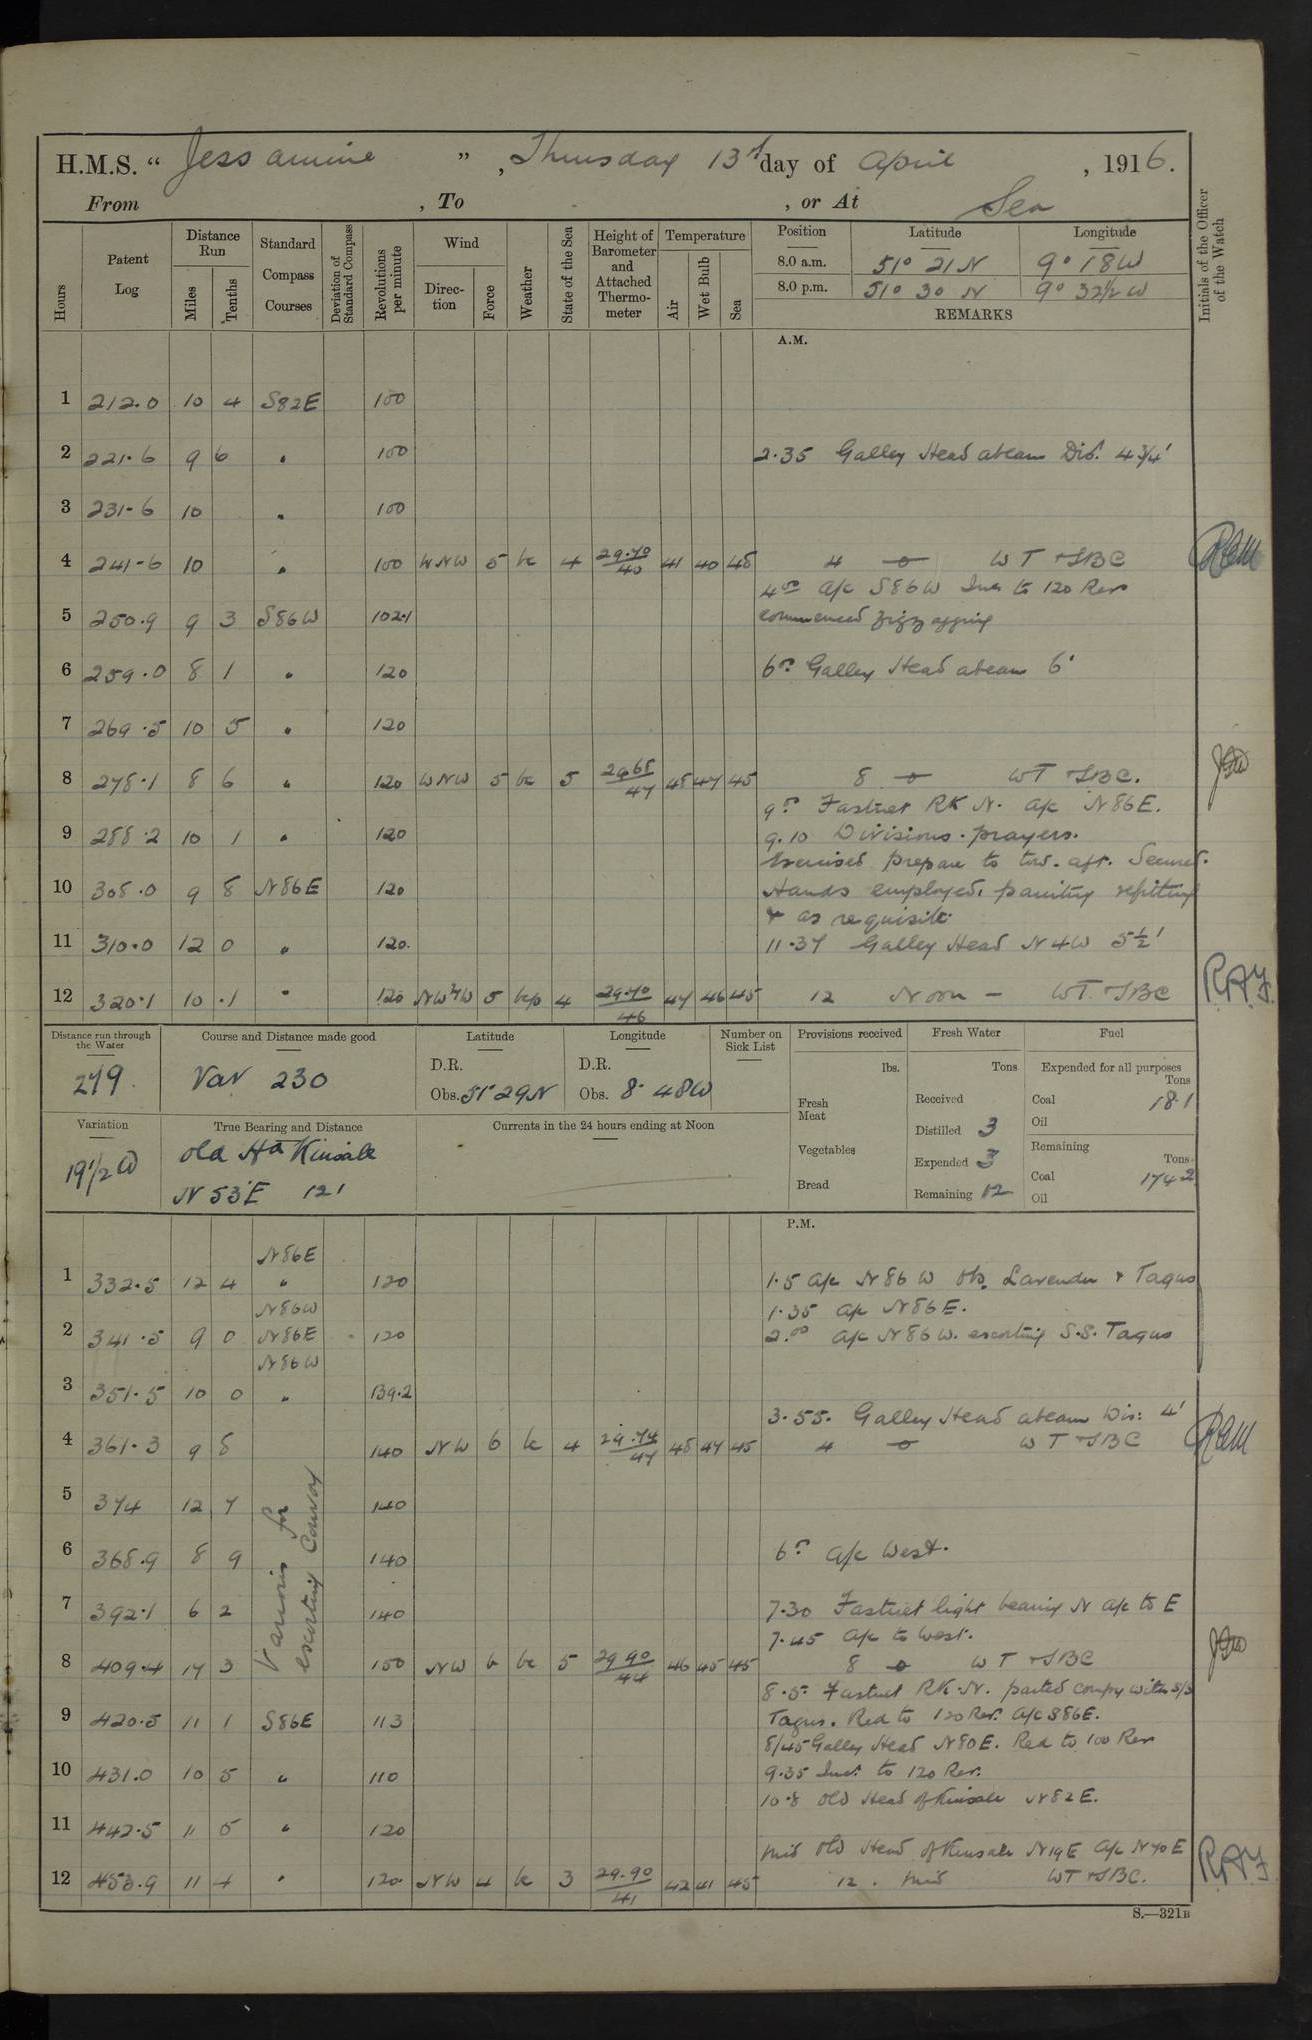 H.M.S. “ Jessamine ”, Thursday 13th day of April, 1916.
From , To , or At Sea
Hours
Patent Log
Distance Run
Miles
Tenths
Standard Compass Courses
Deviation of Standard Compass
Revolutions per minute
Wind
Direction
Force
Weather
State of the Sea
Height of Barometer and Attached Thermometer
Temperature
Air
Wet Bulb
Sea
Position Latitude Longitude
8.0 a.m. 51° 21 N 9° 18 W
8.0 p.m. 51° 30 N 9° 32½ W
REMARKS
Initials of the Officer of the Watch
A.M.
1 212.0 10 4 S82E 100
2 221.6 9 6 " 100 2.35 Galley Head abeam Dis: 4¾'
3 231.6 10 " 100
4 241.6 10 " 100 WNW 5 bc 4 29.70/40 41 40 45 4 WT & SBC
4.00 a/c S86W Incr to 120 Revs
5 250.9 9 3 S86W 102.1 commenced zigzagging
6 259.0 8 1 " 120 6.00 Galley Head abeam 6'
7 269.5 10 5 " 120
8 278.1 8 6 " 120 WNW 5 bc 5 29.68/47 48 47 45 8 WT & SBC.
9.00 Fastnet Rk N. a/c N86E.
9 288.2 10 1 " 120 9.10 Divisions. prayers.
Exercised prepare to tow. aft. Secured.
10 308.0 9 8 N86E 120 Hands employed, painting refitting
& as requisite.
11 310.0 12 0 " 120. 11.37 Galley Head N4W 5½'
12 320.1 10 .1 " 120 5 bcp 4 29.70/46 47 46 45 12 Noon – WT. & SBC RAJ
Distance run through the Water 279.
Course and Distance made good Var 230
Latitude
D.R.
Obs. 51° 29 N
Longitude
D.R.
Obs. 8° 48 W
Number on Sick List
Provisions received
lbs.
Fresh Meat
Vegetables
Bread
Fresh Water
Tons
Received
Distilled 3
Expended 3
Remaining 12
Fuel
Expended for all purposes
Tons
Coal 18.1
Oil
Remaining
Tons
Coal 174.2
Oil
Variation 19½ W
True Bearing and Distance
Old Hd Kinsale
N 53°E 12'
Currents in the 24 hours ending at Noon
P.M.
N86E
1 332.5 12 4 " 120 1.5 a/c N86W obs. Lavender & Tagus
N86W 1.35 a/c N86E.
2 341.5 9 0 N86E 120 2.00 a/c N86W. escorting S.S. Tagus
N86W
3 351.5 10 0 " 139.2
3.55. Galley Head abeam Dis: 4'
4 361.3 9 8 140 NW 6 bc 4 29.74/47 48 47 45 4 WT & SBC
Various for escorting Convoy
5 374 12 7 140
6 368.9 8 9 140 6.00 a/c West.
7 392.1 6 2 140 7.30 Fastnet light bearing N a/c to E
7.45 a/c to West.
8 409.4 17 3 150 NW 6 bc 5 29.90/44 46 45 45 8 WT & SBC
8.5. Fastnet Rk. N. parted compy with S/S
9 420.5 11 1 S86E 113 Tagus. Red to 120 Rev. a/c S86E.
8/45 Galley Head N80E. Red to 100 Rev
10 431.0 10 5 " 110 9.35 Incr. to 120 Rev.
10.8 Old Head of Kinsale N82E.
11 442.5 11 5 " 120
Mid Old Head of Kinsale N19E a/c N70E
12 453.9 11 4 " 120 NW 4 bc 3 29.90/41 42 41 45 12. Mid WT & SBC. RAJ
S.—321B